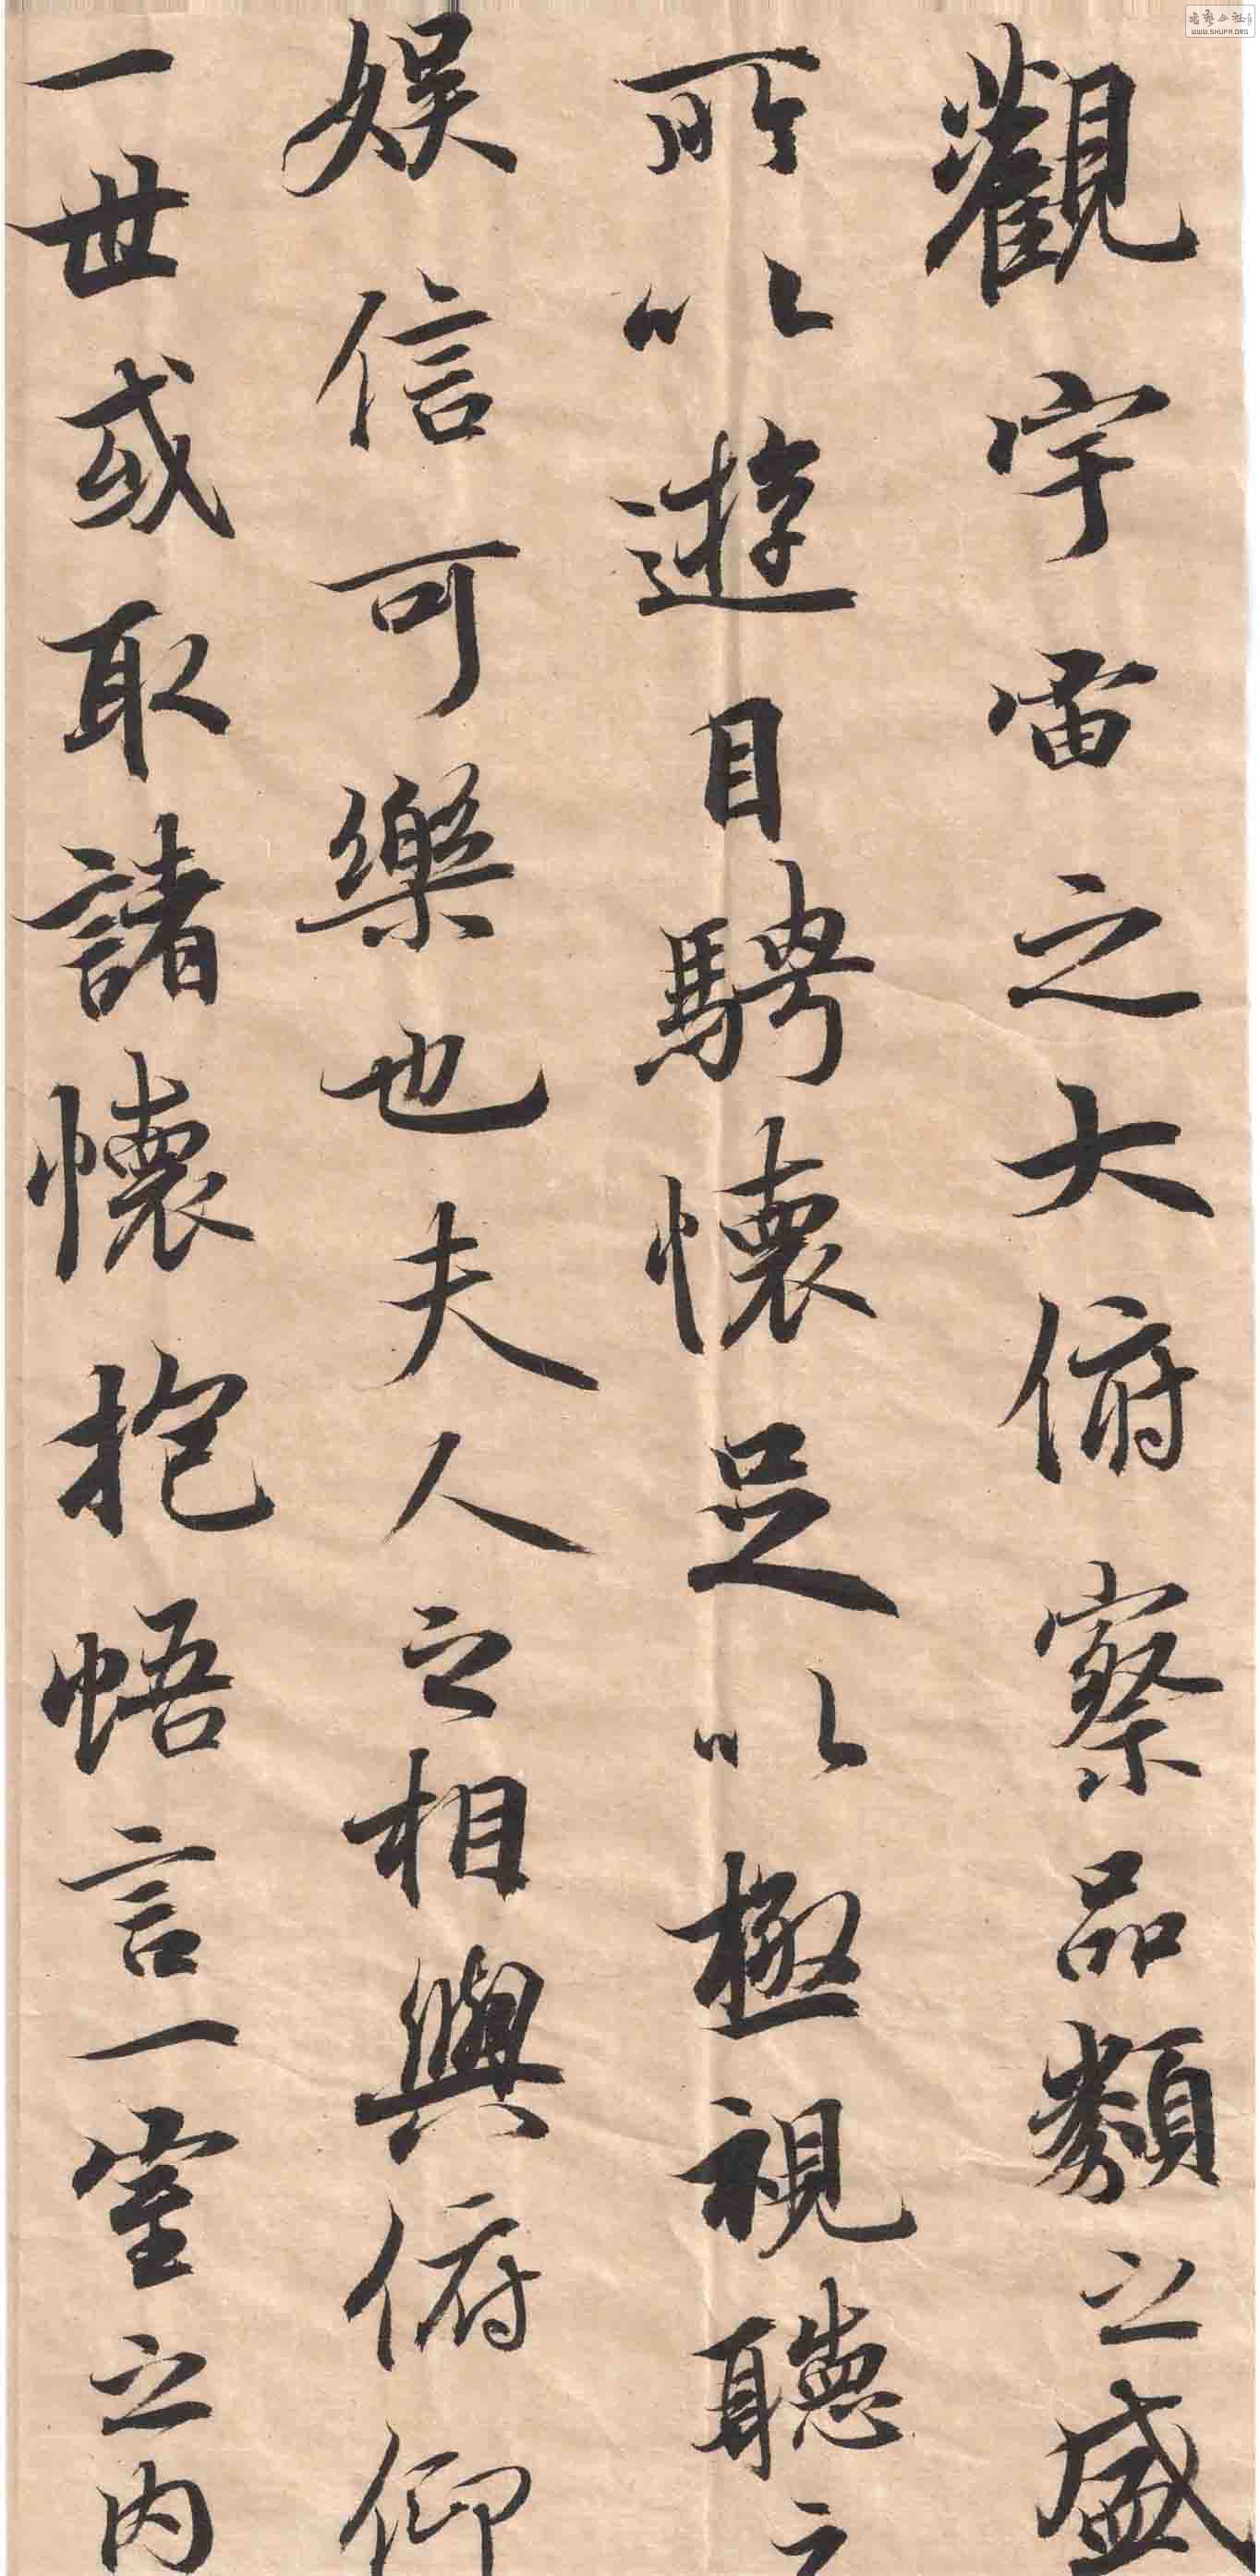 觀宇宙之大俯察品類之盛
所以遊目騁懷足以極視聽之
娛信可樂也夫人之相與俯仰
一世或取諸懷抱悟言一室之内
WWW.SHUFA.ORG